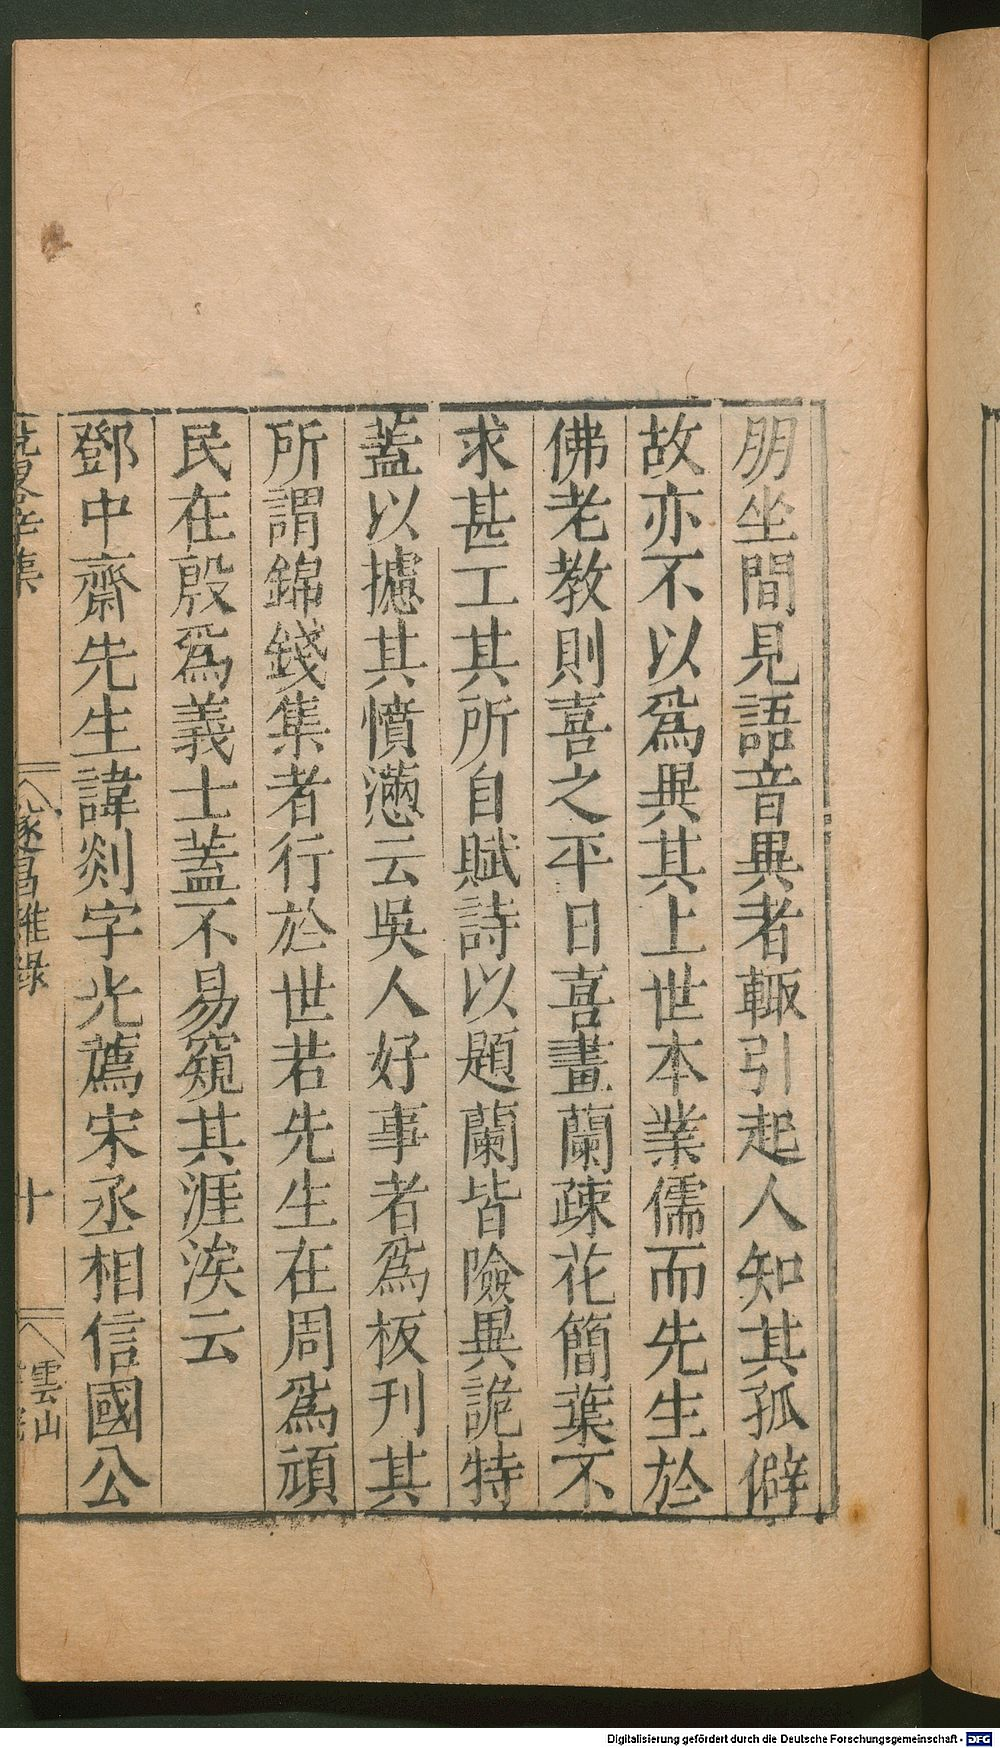 朋坐間見語音異者輙引起人知其孤僻
故亦不以爲異其上世本業儒而先生於
佛老教則喜之平日喜畫蘭疎花簡葉不
求甚工其所自賦詩以題蘭皆險異詭特
蓋以攄其憤懣云吳人好事者爲板刊其
所謂錦錢集者行於世若先生在周爲頑
民在殷爲義士蓋不易窺其涯涘云
鄧中齋先生諱剡字光薦宋丞相信國公
遂昌雜錄
十
雲山
Digitalisierung gefördert durch die Deutsche Forschungsgemeinschaft - DFG